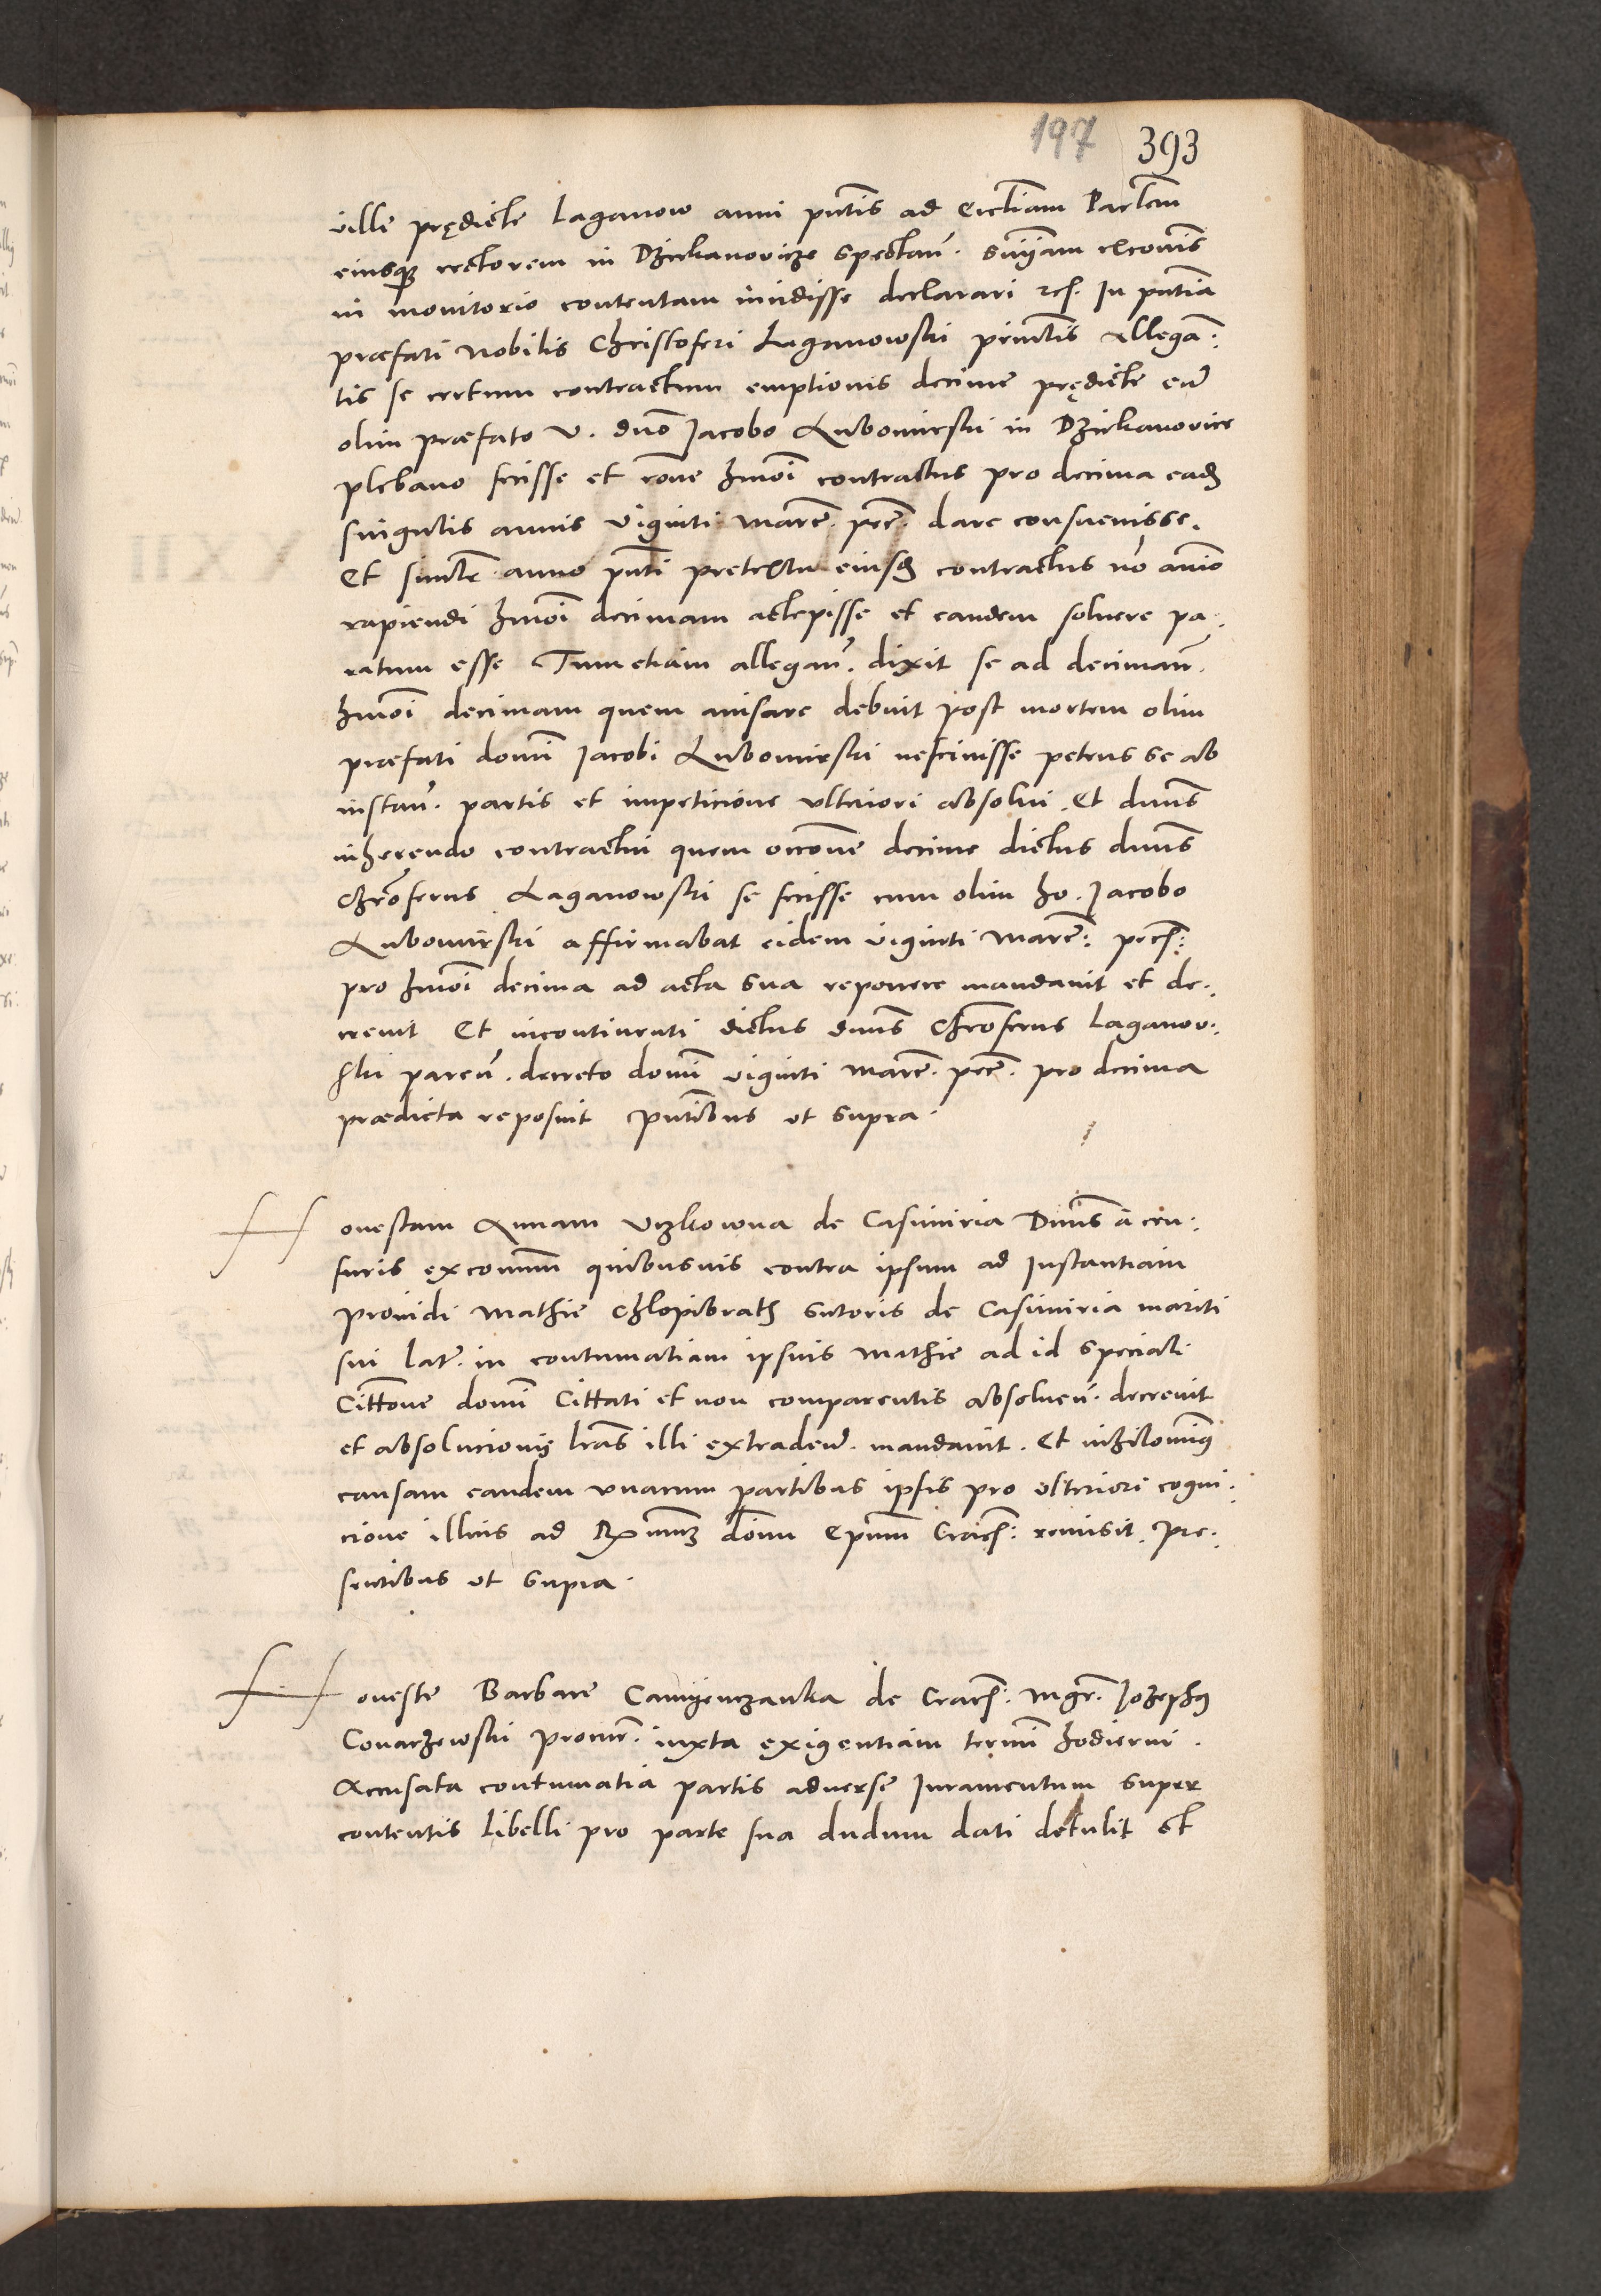 197 393
ville prędicte Laganow anni pñtis ad Ecctiam Parlem
eiusqz rectorem in Dzierkanovicze spectañ. sñiam exconis
in monitorio contentam incidisse declarari etc. In pñtia
præfati Nobilis Christoferi Laganowski principtis Allegan:
tis se certum contractum emptionis decime prędicte cum
olim præfato V. dno Jacobo Lubomirski in Dzierkanovice
plebano fecisse et rõne hmõi contractus pro decima eadem
singulis annis viginti marc. pec. dare consuevisse.
Et similr anno pñti pretextu eiusd contractus nõ aio
rapiendi hmõi decimam accepisse et eandem solvere pa.
ratum esse Tum etiam allegan. dixit se ad deciman.
hmõi decimam quem avisare debuit post mortem olim
præfati domi Jacobi Lubomirski nescivisse petens se ab
instan. partis et impeticione ulteriori absolvi. Et dnus
inherendo contractui quem occone decime dictus dnus
Chrõferus Laganowski se fecisse cum olim ho. Jacobo
Lubomirski affirmabat eidem viginti marc: pec:
pro hmõi decima ad acta sua reponere mandavit et de.
crevit Et incontinenti dictus dnus Chrõferus Laganov.
ski paren. decreto domi viginti marc. pec. pro decima
prædicta reposuit pñtibus ut supra.
Honestam Annam Uczkowna de Casimiria Dnus a cen:
suris excomm quibusvis contra ipsum ad Instantiam
providi Mathie Chlopibrath sutoris de Casimiria mariti
sui lat. in contumatiam ipsius Mathie ad id speciali
Cittone domi Cittati et non comparentis absolven. decrevit
et absolucionis lras illi extraden. mandavit. Et nihilominus
causam eandem unacum partibus ipsis pro ulteriori cogni.
cione illius ad Rmum domn Epum Crac: remisit. Pre.
sentibus ut supra.
Honeste Barbare Camyenczanka de Crac. Mgr. Jozephus
Conarzewski procur. iuxta exigentiam termi hodierni.
Accusata contumatia partis adverse Iuramentum super
contentis libelli pro parte sua dudum dati detulit et